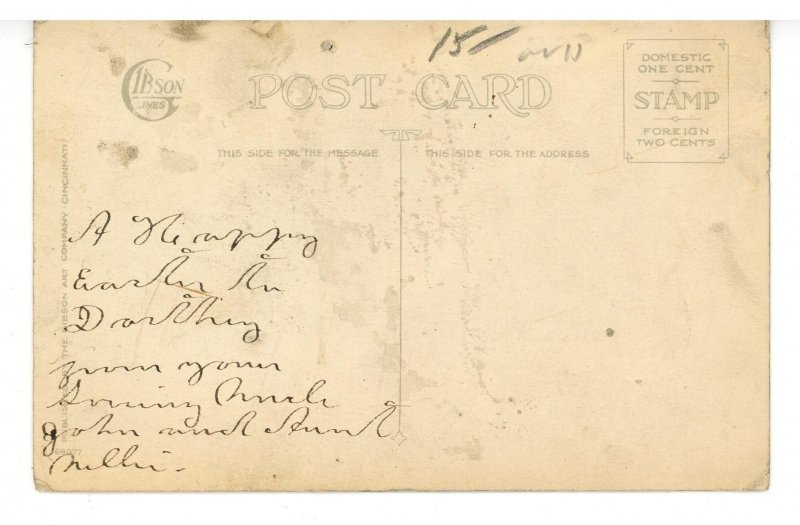 15-
GIBSON
LINES
POST CARD
DOMESTIC
ONE CENT
STAMP
FOREIGN
TWO CENTS
THIS SIDE FOR THE MESSAGE
THIS SIDE FOR THE ADDRESS
A Happy
Easter to
Dorthey
from your
Loving Uncle
John and Aunt
Nellie.
THE GIBSON ART COMPANY CINCINNATI